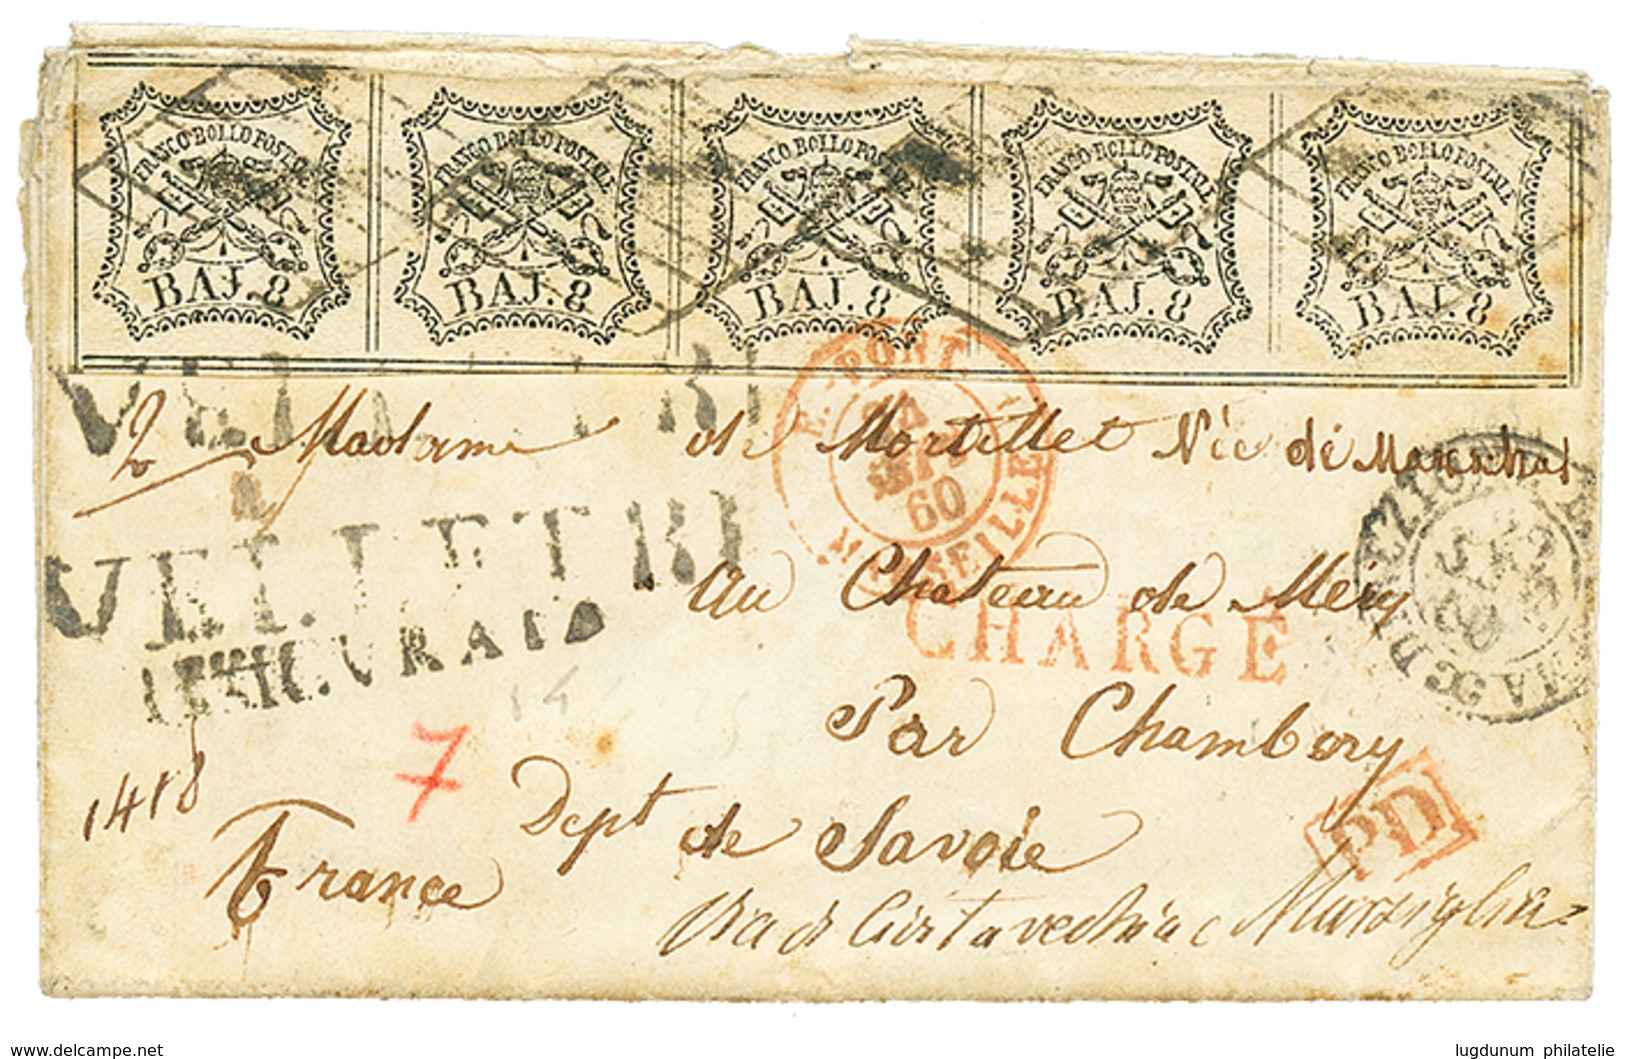 FRANCO BOLLO POSTALE FRANCO BOLLO POSTALE FRANCO BOLLO POSTALE FRANCO BOLLO POSTALE FRANCO BOLLO POSTALE
BAJ. 8 BAJ. 8 BAJ. 8 BAJ. 8 BAJ. 8
VELLETRI
E. PONT.
4
SEPT
60
MARSEILLE
Madame de Mortillet Née di
VELLETRI
ASSICURATA
au Chateau de Méry
CHARGÉ
DIREZIONE
Par Chambery
7
1418
PD
Dept de Savoie
France
Via di Civitavecchia e Marsiglia
www.delcampe.net
lugdunum philatelie